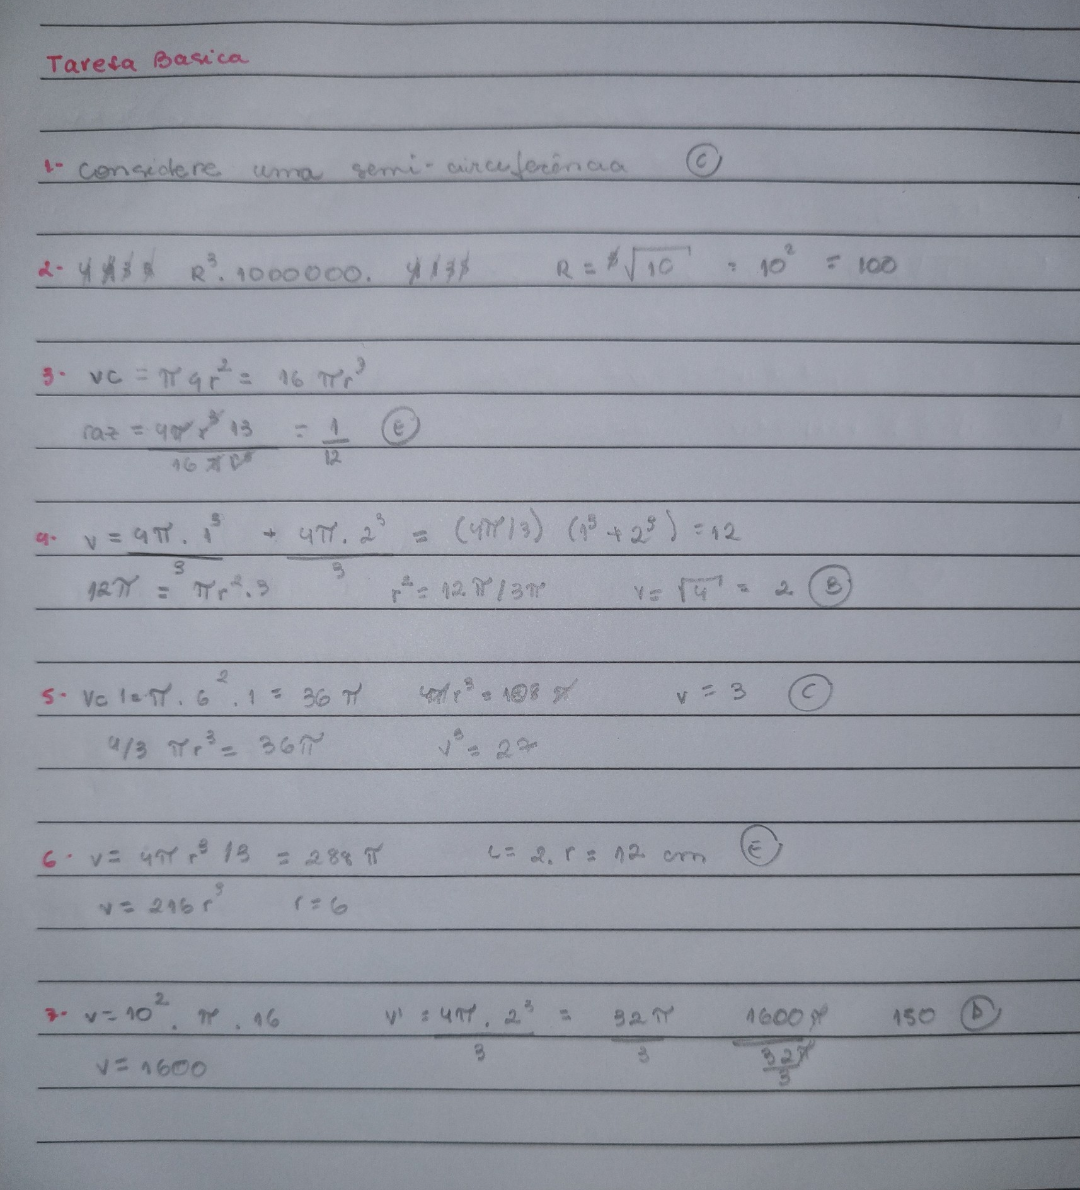 Tarefa Basica
1- considere uma semi-circuferência (C)
2- R³. 1000000. R = √10 = 10² = 100
3- vc = π4r² = 16 πr³
raz = 4πr³/3 / 16πr³ = 1/12 (E)
4- v = 4π.1³/3 + 4π.2³/3 = (4π/3) (1³+2³) = 12
12π = πr².3 r² = 12π/3π r = √4 = 2 (B)
5- Vc 1 = π.6².1 = 36π 4πr³ = 108π r = 3 (C)
4/3 πr³ = 36π r³ = 27
6- v = 4πr³/3 = 288π L = 2.r = 12 cm (E)
v = 216r³ r = 6
7- v = 10².π.16 V' = 4π.2³/3 = 32π/3 1600π/(32π/3) 150 (D)
v = 1600